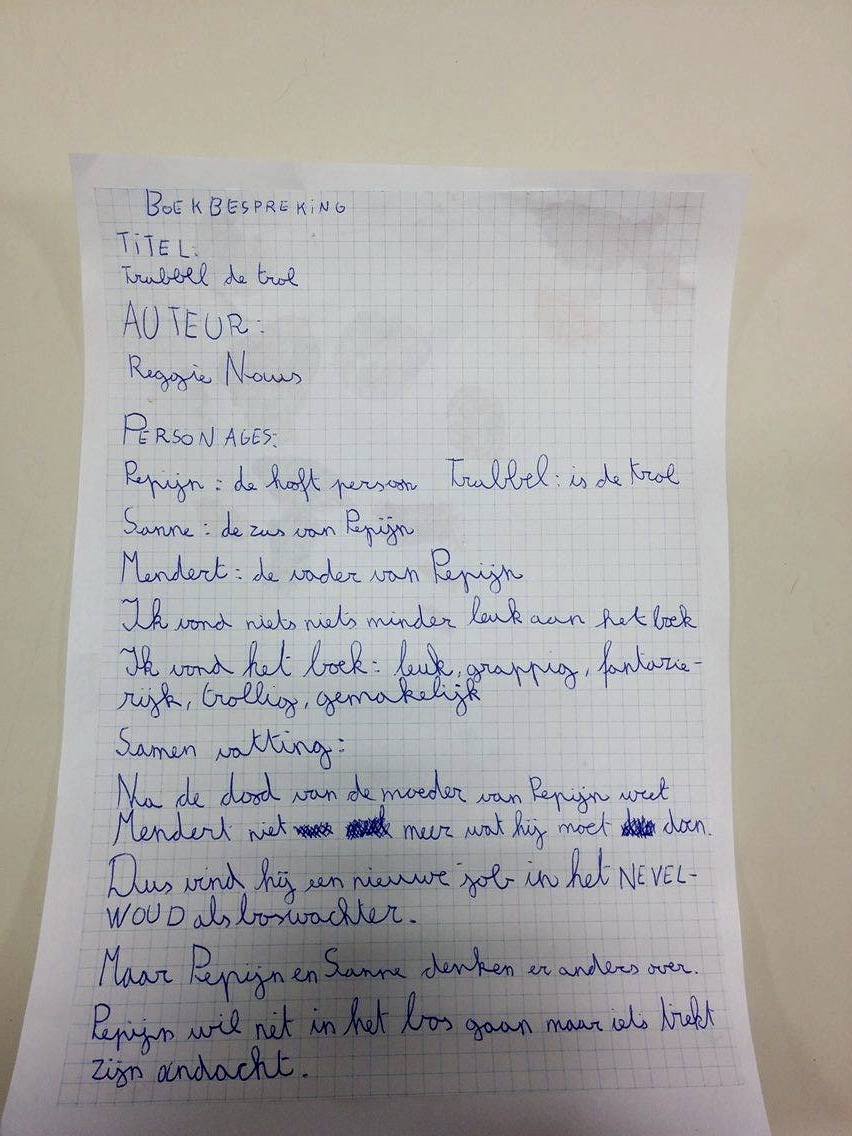 BOEKBESPREKING
TITEL:
Trabbel de trol
AUTEUR:
Reggie Naus
PERSONAGES:
Pepijn : de hooft persoon Trabbel : is de trol
Sanne : de zus van Pepijn
Mendert : de vader van Pepijn
Ik vond niets niets minder leuk aan het boek
Ik vond het boek : leuk, grappig, fantazie-
rijk, trollig, gemakelijk
Samen vatting :
Na de dood van de moeder van Pepijn weet
Mendert niet meer wat hij moet doen.
Dus vind hij een nieuwe job in het NEVEL-
WOUD als boswachter.
Maar Pepijn en Sanne denken er anders over.
Pepijn wil nét in het bos gaan maar iets trekt
zijn andacht.